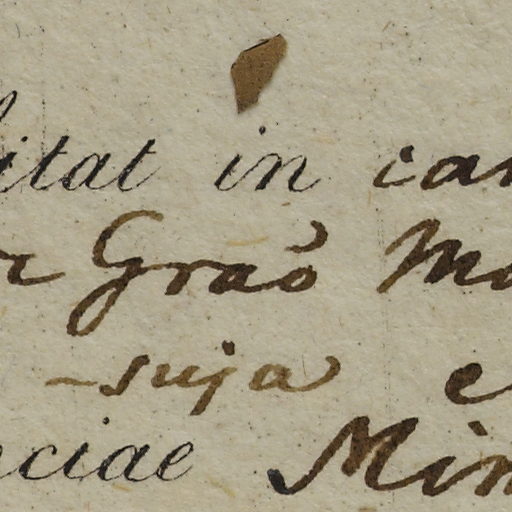 itat in can
Graõ Mo
-suja e
ciae Min